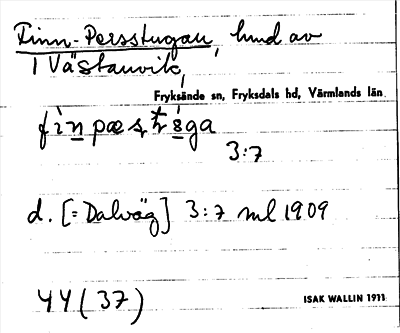 Finn-Persstugan, hmd av
1 Västanvik,
Fryksände sn, Fryksdals hd, Värmlands län.
3:7
d. [= Dalväg] 3:7 ml 1909
44 (37)
ISAK WALLIN 1911